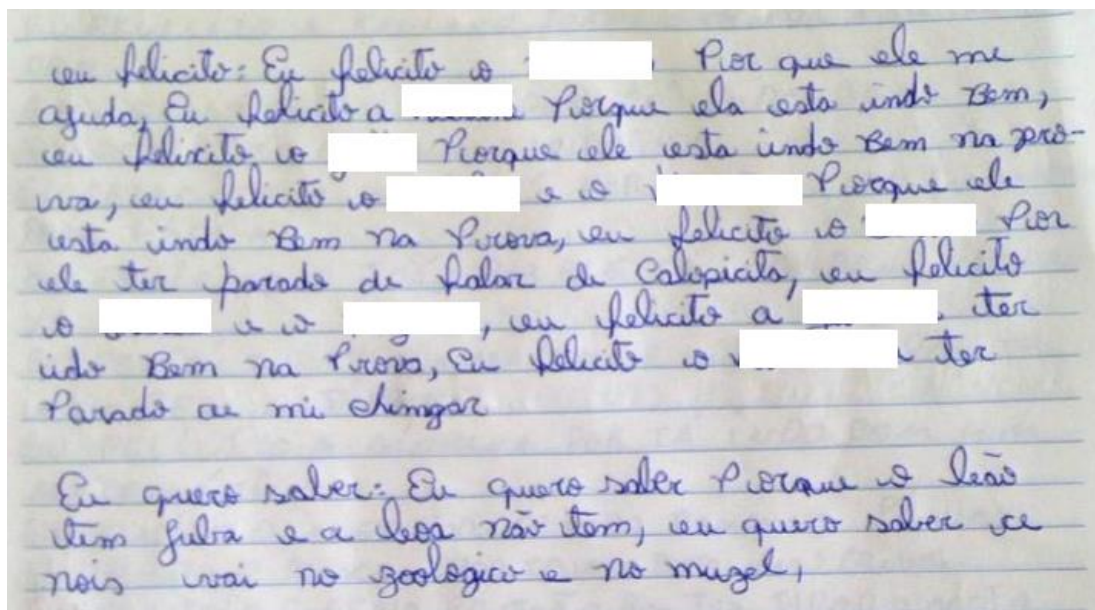 eu felicito: Eu felicito o Por que ele me
ajuda, Eu felicito a Porque ela esta indo Bem,
eu felicito o Porque ele esta indo Bem na pro-
va, eu felicito o e o Porque ele
esta indo Bem na Prova, eu felicito o Por
ele ter parado de falar de Calopicita, eu felicito
o e o , eu felicito a ter
ido Bem na Prova, Eu felicito o ter
Parado de mi chimgar
Eu quero saber: Eu quero saber Porque o leão
tem juba e a leoa não tem, eu quero saber ce
nois vai no zoologico e no muzel,